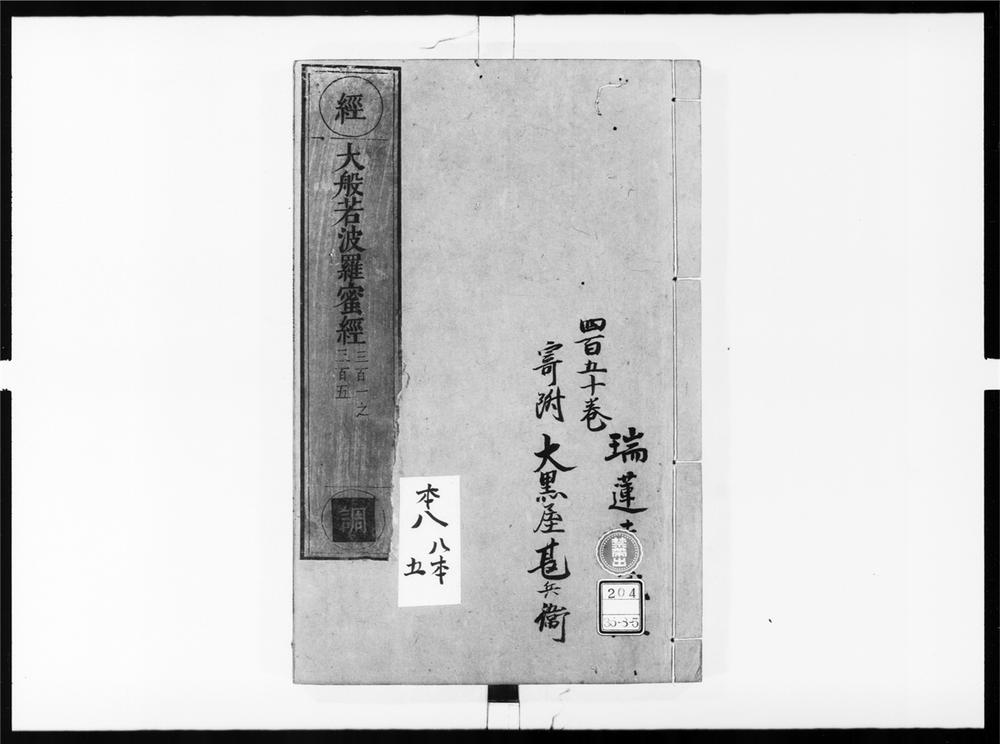 瑞蓮
四百五十巻
寄附 大黒屋甚兵衛
禁帶出
204
35-8-5
經
大般若波羅蜜經
三百一之
三百五
調
本八
八本
五